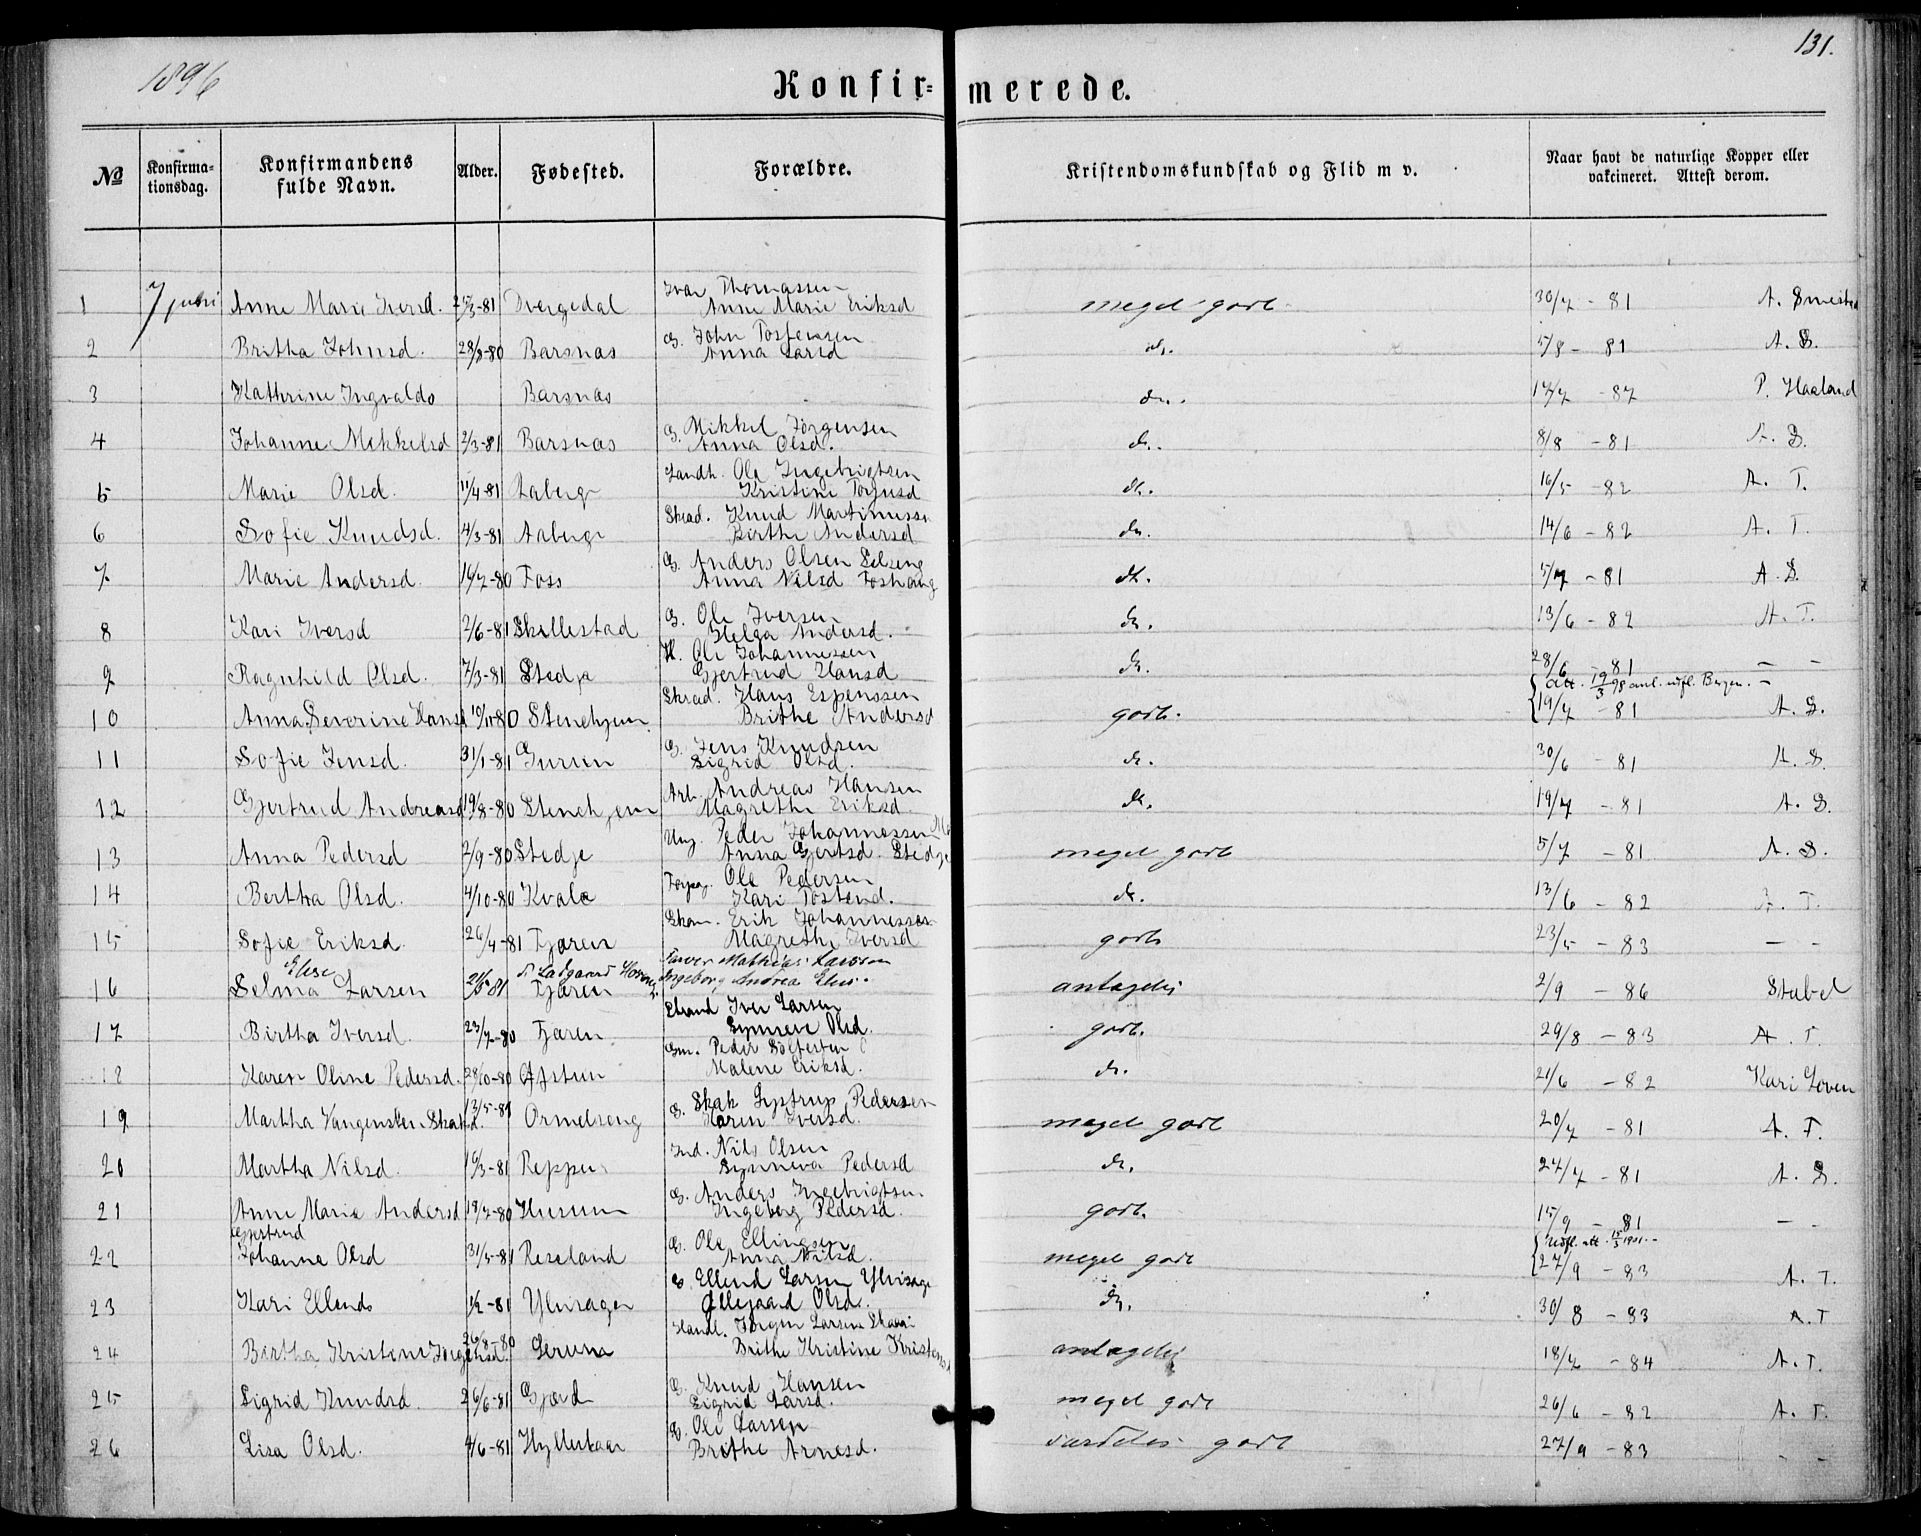 1896
131.
Konfir=merede.
№ Konfirma-tionsdag. Konfirmandens fulde Navn. Alder. Fødested. Forældre. Kristendomskundskab og Flid m v. Naar havt de naturlige Kopper eller vakcineret. Attest derom.
Ivar Thomassen
1 7 juni Anne Marie Iversd. Dvergedal Anne Marie Eriksd meget godt 30/7 - 81 A. Smestad
G. John Tostensen
2 Britha Johnsd. 28/8-80 Barsnæs Anna Larsd do. 5/8 - 81 A. S.
3 Kathrine Ingvalds Barsnæs do. 17/7 - 87 P. Haaland
G. Mikkel Jørgensen
4 Johanne Mikkelsd 2/3-81 Barsnæs Anna Olsd. do. 8/8 - 81 A. S.
Landh. Ole Ingebrigtsen
5 Marie Olsd. 11/4-81 Aaberge Kristine Torjusd do. 16/5 - 82 A. T.
Skræd. Knud Martinussen
6 Sofie Knudsd. 4/3-81 Aaberge Birthe Andersd do. 14/6 - 82 A. T.
G. Anders Olsen Selseng
7. Marie Andersd. 14/7-80 Foss Anna Nilsd Foshaug do. 5/7 - 81 A. S.
G. Ole Iversen
8 Kari Iversd 2/6-81 Skillestad Helga Andersd. do. 13/6 - 82 A. T.
H. Ole Johannessen
9 Ragnhild Olsd. 7/3-81 Stedje Gjertrud Hansd do. 28/6 - 81 — —
Skræd. Hans Espenssen Att. 19/3 98 anl. udfl. Bergen. -
10 Anna Severine Hansd 10/11-80 Stenehjem Brithe Andersd godt. 19/7 - 81 A. S.
G. Jens Knudsen
11 Sofie Jensd. 31/1-81 Gurvin Sigrid Olsd. do. 30/6 - 81 A. S.
Arb. Andreas Hansen
12 Gjertrud Andreasd 19/8-80 Stenehjem Magrethe Eriksd. do. 19/7 - 81 A. S.
Ung. Peder Johannessen
13 Anna Pedersd 2/9-80 Stedje Anna Gjertsd. Stedje meget godt 5/7 - 81 A. S.
Ole Pedersen
14 Bertha Olsd. 4/10-80 Kvale Kari Tostend. do. 13/6 - 82 A. T.
Skom. Erik Johannessen
15 Sofie Eriksd. 26/4-81 Fjæren Magrethe Iversd godt 23/5 - 83 — —
Elise Farver Mathias Larsen
16 Selma Larsen Fjæren Ingeborg Andrea Elise antagelig 2/9 - 86 Stabel
Strand Iver Larsen
17 Birtha Iversd. 23/7-80 Fjæren Synneve Olsd. godt. 29/8 - 83 A. T.
Gm. Peder
18 Karen Oline Pedersd. 28/10-80 Afstun Malene Eriksd. do. 21/6 - 82 Kari Loven
G. Skak Lystrup Pedersen
19 Martha Vangensten Skaksd. 13/5-81 Ormelseng Karen Iversd. meget godt 20/7 - 81 A. T.
Ind. Nils Olsen
20 Martha Nilsd. 19/3-81 Reppen Synneva Pedersd do. 24/7 - 81 A. S.
G. Anders Ingebrigtsen
21 Anne Marie Andersd 19/7-80 Husum Ingeborg Pedersd. godt. 15/9 - 81 — -
Gjertrud G. Ole Ellingsen Udfl. att. 15/3 1901. -
22 Johanne Olsd 31/5-81 Reseland Anna Nilsd. meget godt 27/9 - 83 A. T.
G. Ellend Larsen Ylvisager
23 Kari Ellends 1/2-81 Ylvisager Ollegaard Olsd. do. 30/8 - 83 A. T
Handl. Jørgen Larsen
24 Birtha Kristine Jørgensd. 26/8-80 Lerum Brithe Kristine Kristensd antagelig 18/7 - 84 A. T.
G. Knud Hansen
25 Sigrid Knudsd. 26/6-81 Gjærde Sigrid Larsd. meget godt 26/6 - 82 A. T.
G. Ole Larsen
26 Lisa Olsd. 4/6-81 Hylleskaar Brithe Arnesd. særdeles godt 27/9 - 83 - -